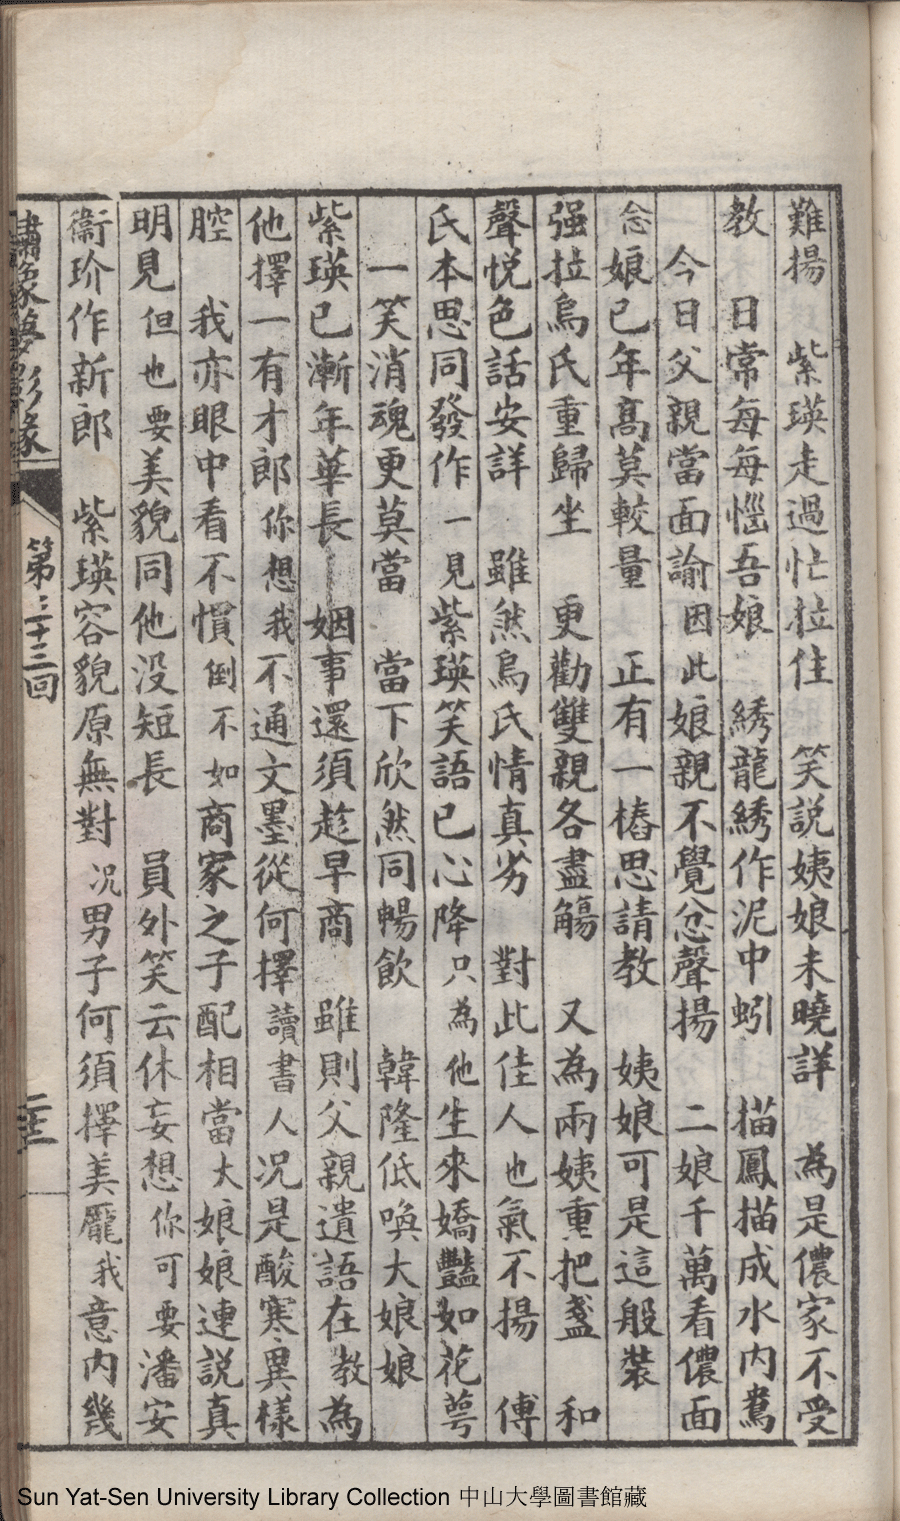 難揚　紫瑛走過忙拉住　笑説姨娘未曉詳　為是儂家不受
教　日常每每惱吾娘　綉龍綉作泥中蚓　描鳳描成水内鴦
今日父親當面諭因此娘親不覺忿聲揚　二娘千萬看儂面
念娘已年髙莫較量　正有一樁思請教　姨娘可是這般裝
强拉烏氏重歸坐　更勸雙親各盡觴　又為兩姨重把盞　和
聲悦色話安詳　雖然烏氏情真劣　對此佳人也氣不揚　傅
氏本思同發作一見紫瑛笑語已心降只為他生來嬌豔如花萼
一笑消魂更莫當　當下欣然同暢飲　韓隆低喚大娘娘
紫瑛已漸年華長　姻事還須趁早商　雖則父親遺語在教為
他擇一有才郎你想我不通文墨從何擇讀書人况是酸寒異樣
腔　我亦眼中看不慣倒不如商家之子配相當大娘娘連説真
明見但也要美貌同他没短長　員外笑云休妄想你可要潘安
衞玠作新郎　紫瑛容貌原無對况男子何須擇美龎我意内幾
繡像夢影緣　第三十三回　二十三
Sun Yat-Sen University Library Collection 中山大學圖書館藏